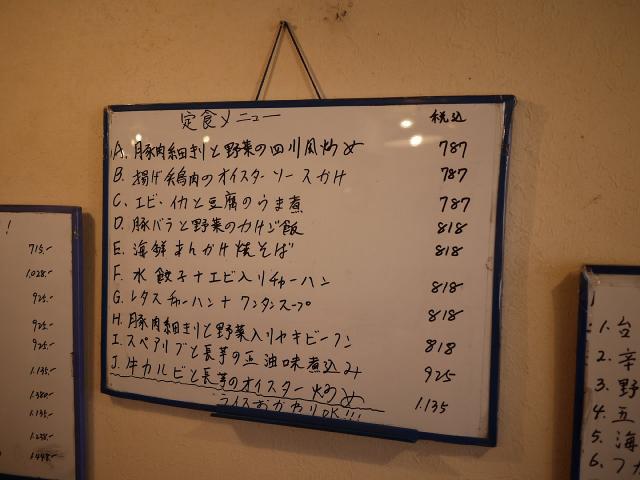 定食メニュー 税込
A. 豚肉細切りと野菜の四川風炒め 787
B. 揚げ鶏肉のオイスターソースかけ 787
C. エビ・イカと豆腐のうま煮 787
D. 豚バラと野菜のかけご飯 818
E. 海鮮あんかけ焼そば 818
F. 水餃子+エビ入りチャーハン 818
G. レタスチャーハン+ワンタンスープ 818
H. 豚肉細切りと野菜入りヤキビーフン 818
I. スペアリブと長芋の正油味煮込み 925
J. 牛カルビと長芋のオイスター炒め 1.135
ライスおかわりOK!!!
!
715.-
1.028.-
925.-
925.-
925.-
1.135.-
1.380.-
1.135.-
1.238.-
1.448.-
1. 台
2. 辛
3. 野
4. 五
5. 海
6. フカ